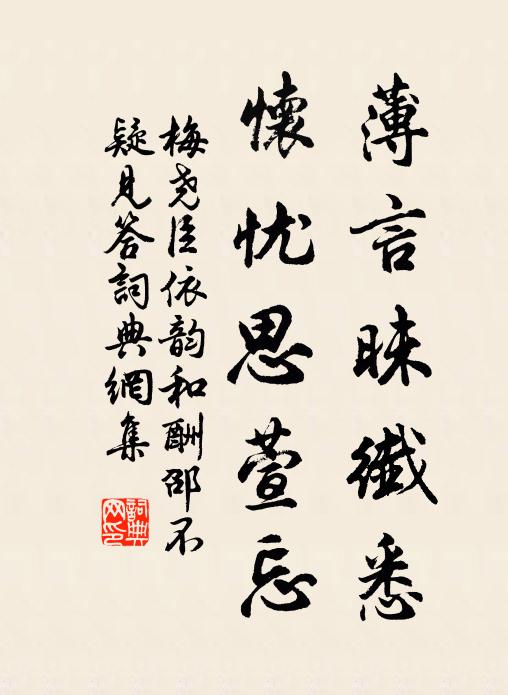 薄言昧纖悉
懷忧思萱忘
梅尧臣依韵和酬邵不
疑見答詞典網集
詞典
网印